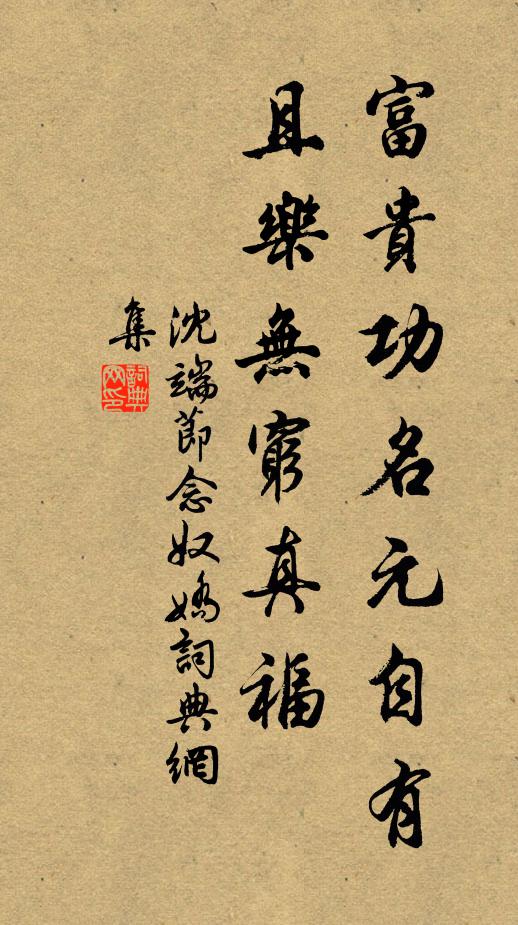 富貴功名元自有
且樂無窮真福
沈端節念奴嬌詞典網
集
詞典
网印